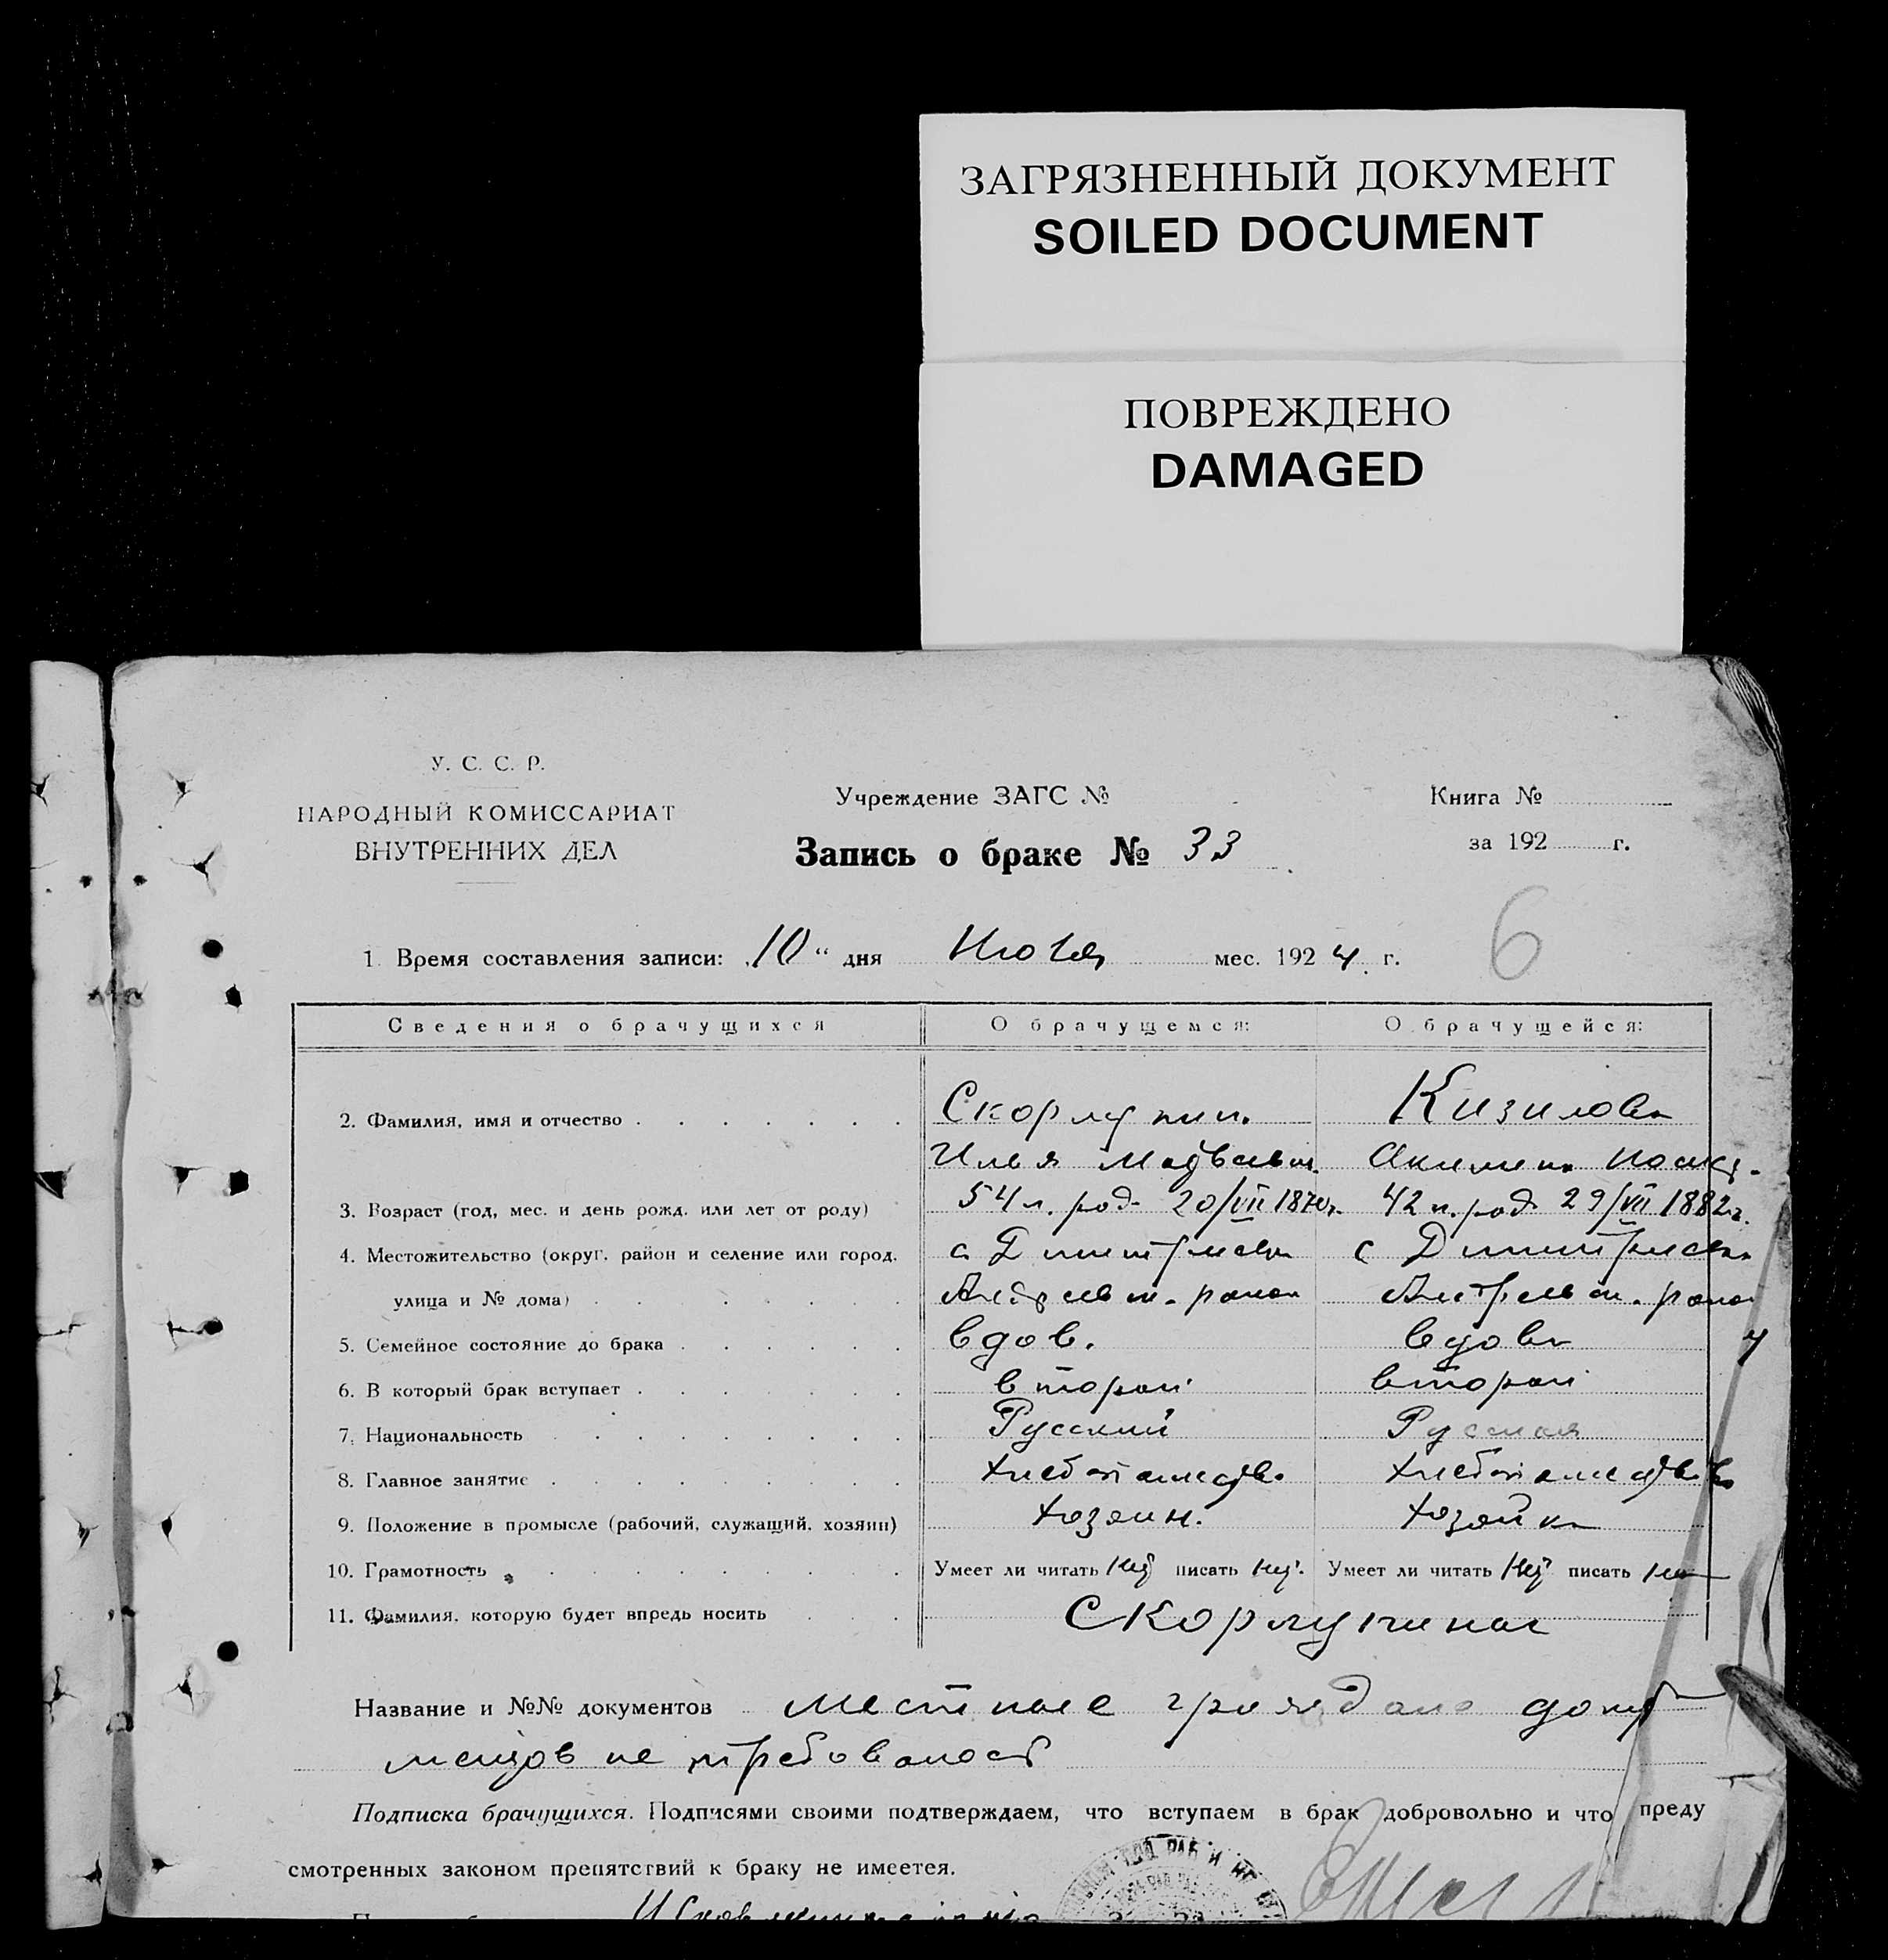 ЗАГРЯЗНЕННЫЙ ДОКУМЕНТ
SOILED DOCUMENT
ПОВРЕЖДЕНО
DAMAGED
У. С. С. Р.
НАРОДНЫЙ КОМИССАРИАТ
ВНУТРЕННИХ ДЕЛ
Учреждение ЗАГС №
Запись о браке № 33
Книга №
за 192 г.
6
1. Время составления записи: „10“ дня Июля мес. 1924 г.
Сведения о брачущихся О брачущемся: О брачущейся:
2. Фамилия, имя и отчество Скорлупин. Кизилова
Илья Акилина
3. Возраст (год, мес. и день рожд. или лет от роду) 54 л. род. 20/VII 1870г. 42 л. род. 29/VII 1882г.
4. Местожительство (округ, район и селение или город, с Дмитриевка с Дмитриевка
улица и № дома) район район
5. Семейное состояние до брака вдов. вдова
6. В который брак вступает второй второй
7. Национальность Русский Русская
8. Главное занятие хлебопашество хлебопашество
9. Положение в промысле (рабочий, служащий, хозяин) хозяин. хозяйка
10. Грамотность Умеет ли читать нет писать нет. Умеет ли читать нет писать нет
11. Фамилия, которую будет впредь носить Скорлупина
Название и №№ документов местные граждане доку
ментов не требовалось
Подписка брачущихся. Подписями своими подтверждаем, что вступаем в брак добровольно и что преду
смотренных законом препятствий к браку не имеется.